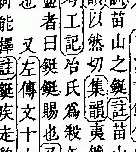 苗山之鋌註苗山
以然切集韻夷
工記冶氏爲殺矢
盡者曰鋌鋌賜也
也 又左傳文十
何能擇註鋌疾走